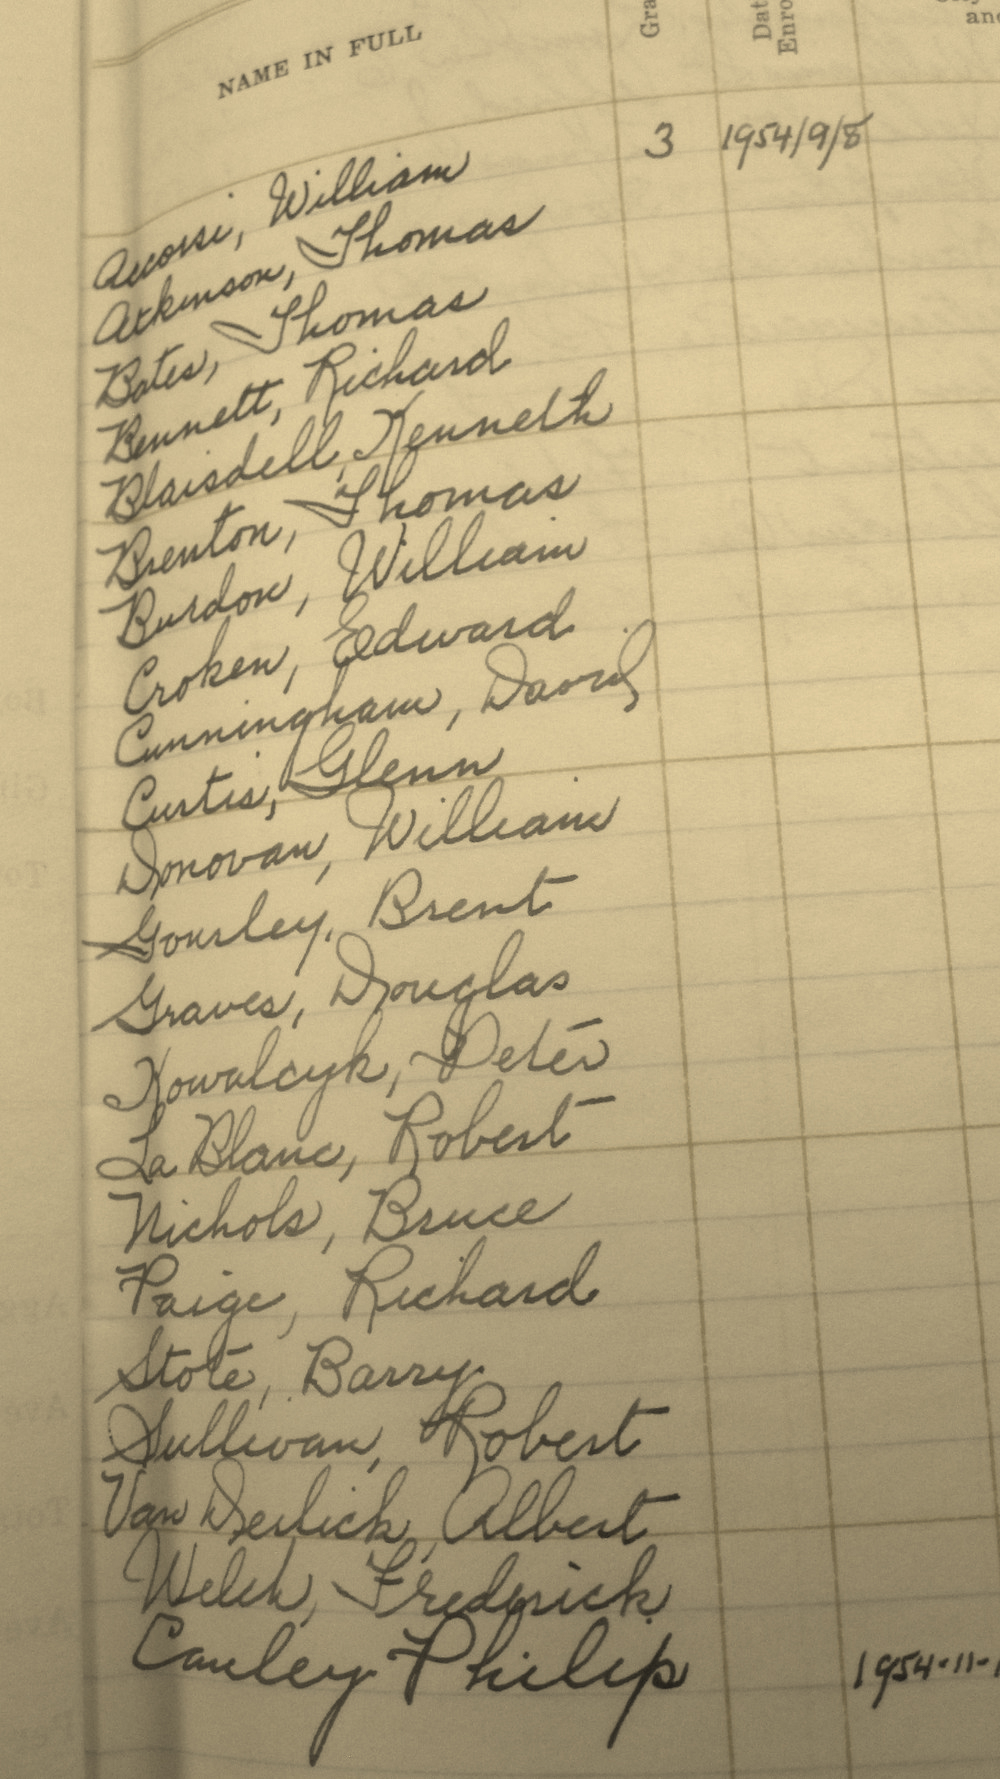 NAME IN FULL
Gra
Dat
Enro
and
Accorsi, William 3 1954/9/8
Atkinson, Thomas
Bates, Thomas
Bennett, Richard
Blaisdell, Kenneth
Brenton, Thomas
Burdon, William
Croken, Edward
Cunningham, David
Curtis, Glenn
Donovan, William
Gourley, Brent
Graves, Douglas
Kowalcyk, Peter
La Blanc, Robert
Nichols, Bruce
Paige, Richard
Stote, Barry
Sullivan, Robert
Van Derlick, Albert
Welch, Frederick
Cauley Philip 1954-11-1